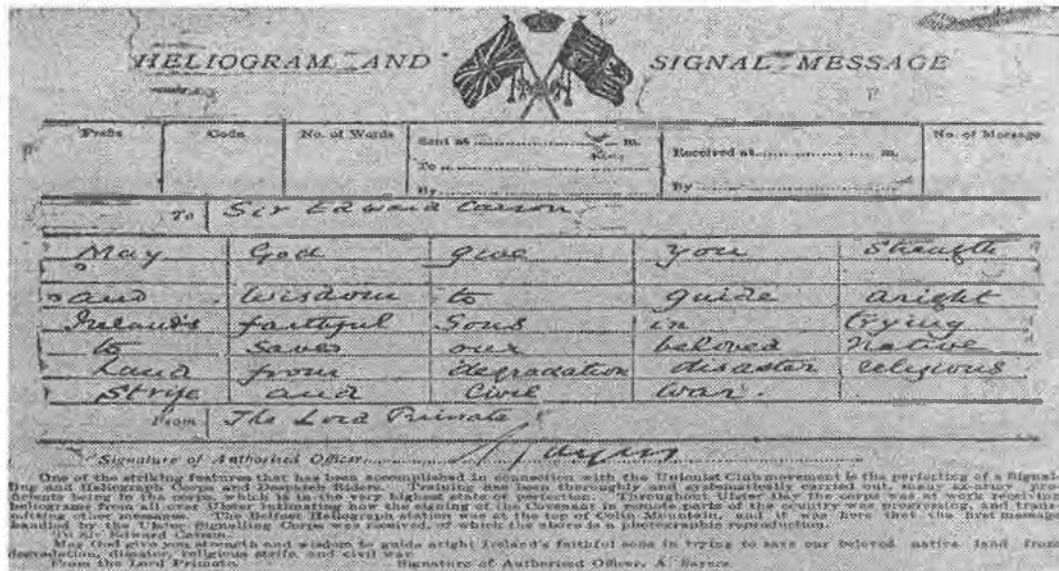 HELIOGRAM AND SIGNAL MESSAGE
Prefix Code No. of Words Sent at m. Received at m. No. of Message
To
By By
To Sir Edward Carson
May God give you strength
and wisdom to guide aright
Ireland's faithful Sons in trying
to save our beloved native
Land from degradation disaster religious
strife and Civil War.
From The Lord Primate
Signature of Authorised Officer
One of the striking features that has been accomplished in connection with the Unionist Club movement is the perfecting of a Signal-
ling and Heliograph Corps and Despatch Riders. Training has been thoroughly and systematically carried out, many ex-army pro-
ficients being in the corps, which is in the very highest state of perfection. Throughout Ulster Day the corps was at work receiving
helograms from all over Ulster intimating how the signing of the Covenant in remote parts of the country was progressing, and trans-
mitting other messages. The Belfast Heliograph station was at the top of Colin Mountain, and it was here that the first message
handled by the Ulster Signalling Corps was received, of which the above is a photographic reproduction.
To Sir Edward Carson.
May God give you strength and wisdom to guide aright Ireland's faithful sons in trying to save our beloved native land from
degradation, disaster, religious strife, and civil war.
From the Lord Primate. Signature of Authorised Officer, A. Sayers.